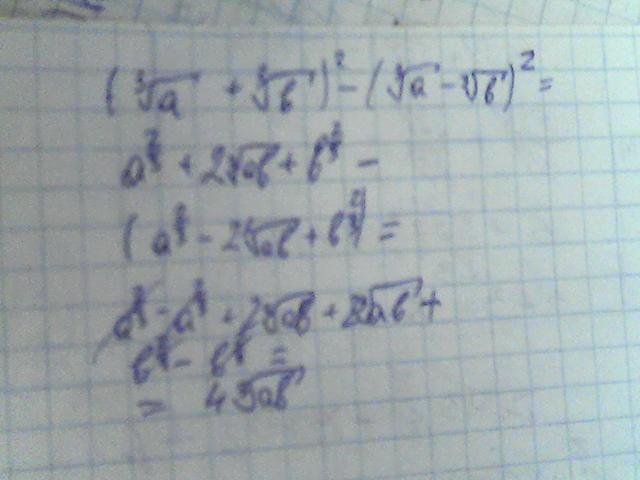 (∛a + ∛b)² - (∛a - ∛b)² =
a^(2/3) + 2∛ab + b^(2/3) -
(a^(2/3) - 2∛ab + b^(2/3)) =
a^(2/3) - a^(2/3) + 2∛ab + 2∛ab +
b^(2/3) - b^(2/3) =
= 4∛ab